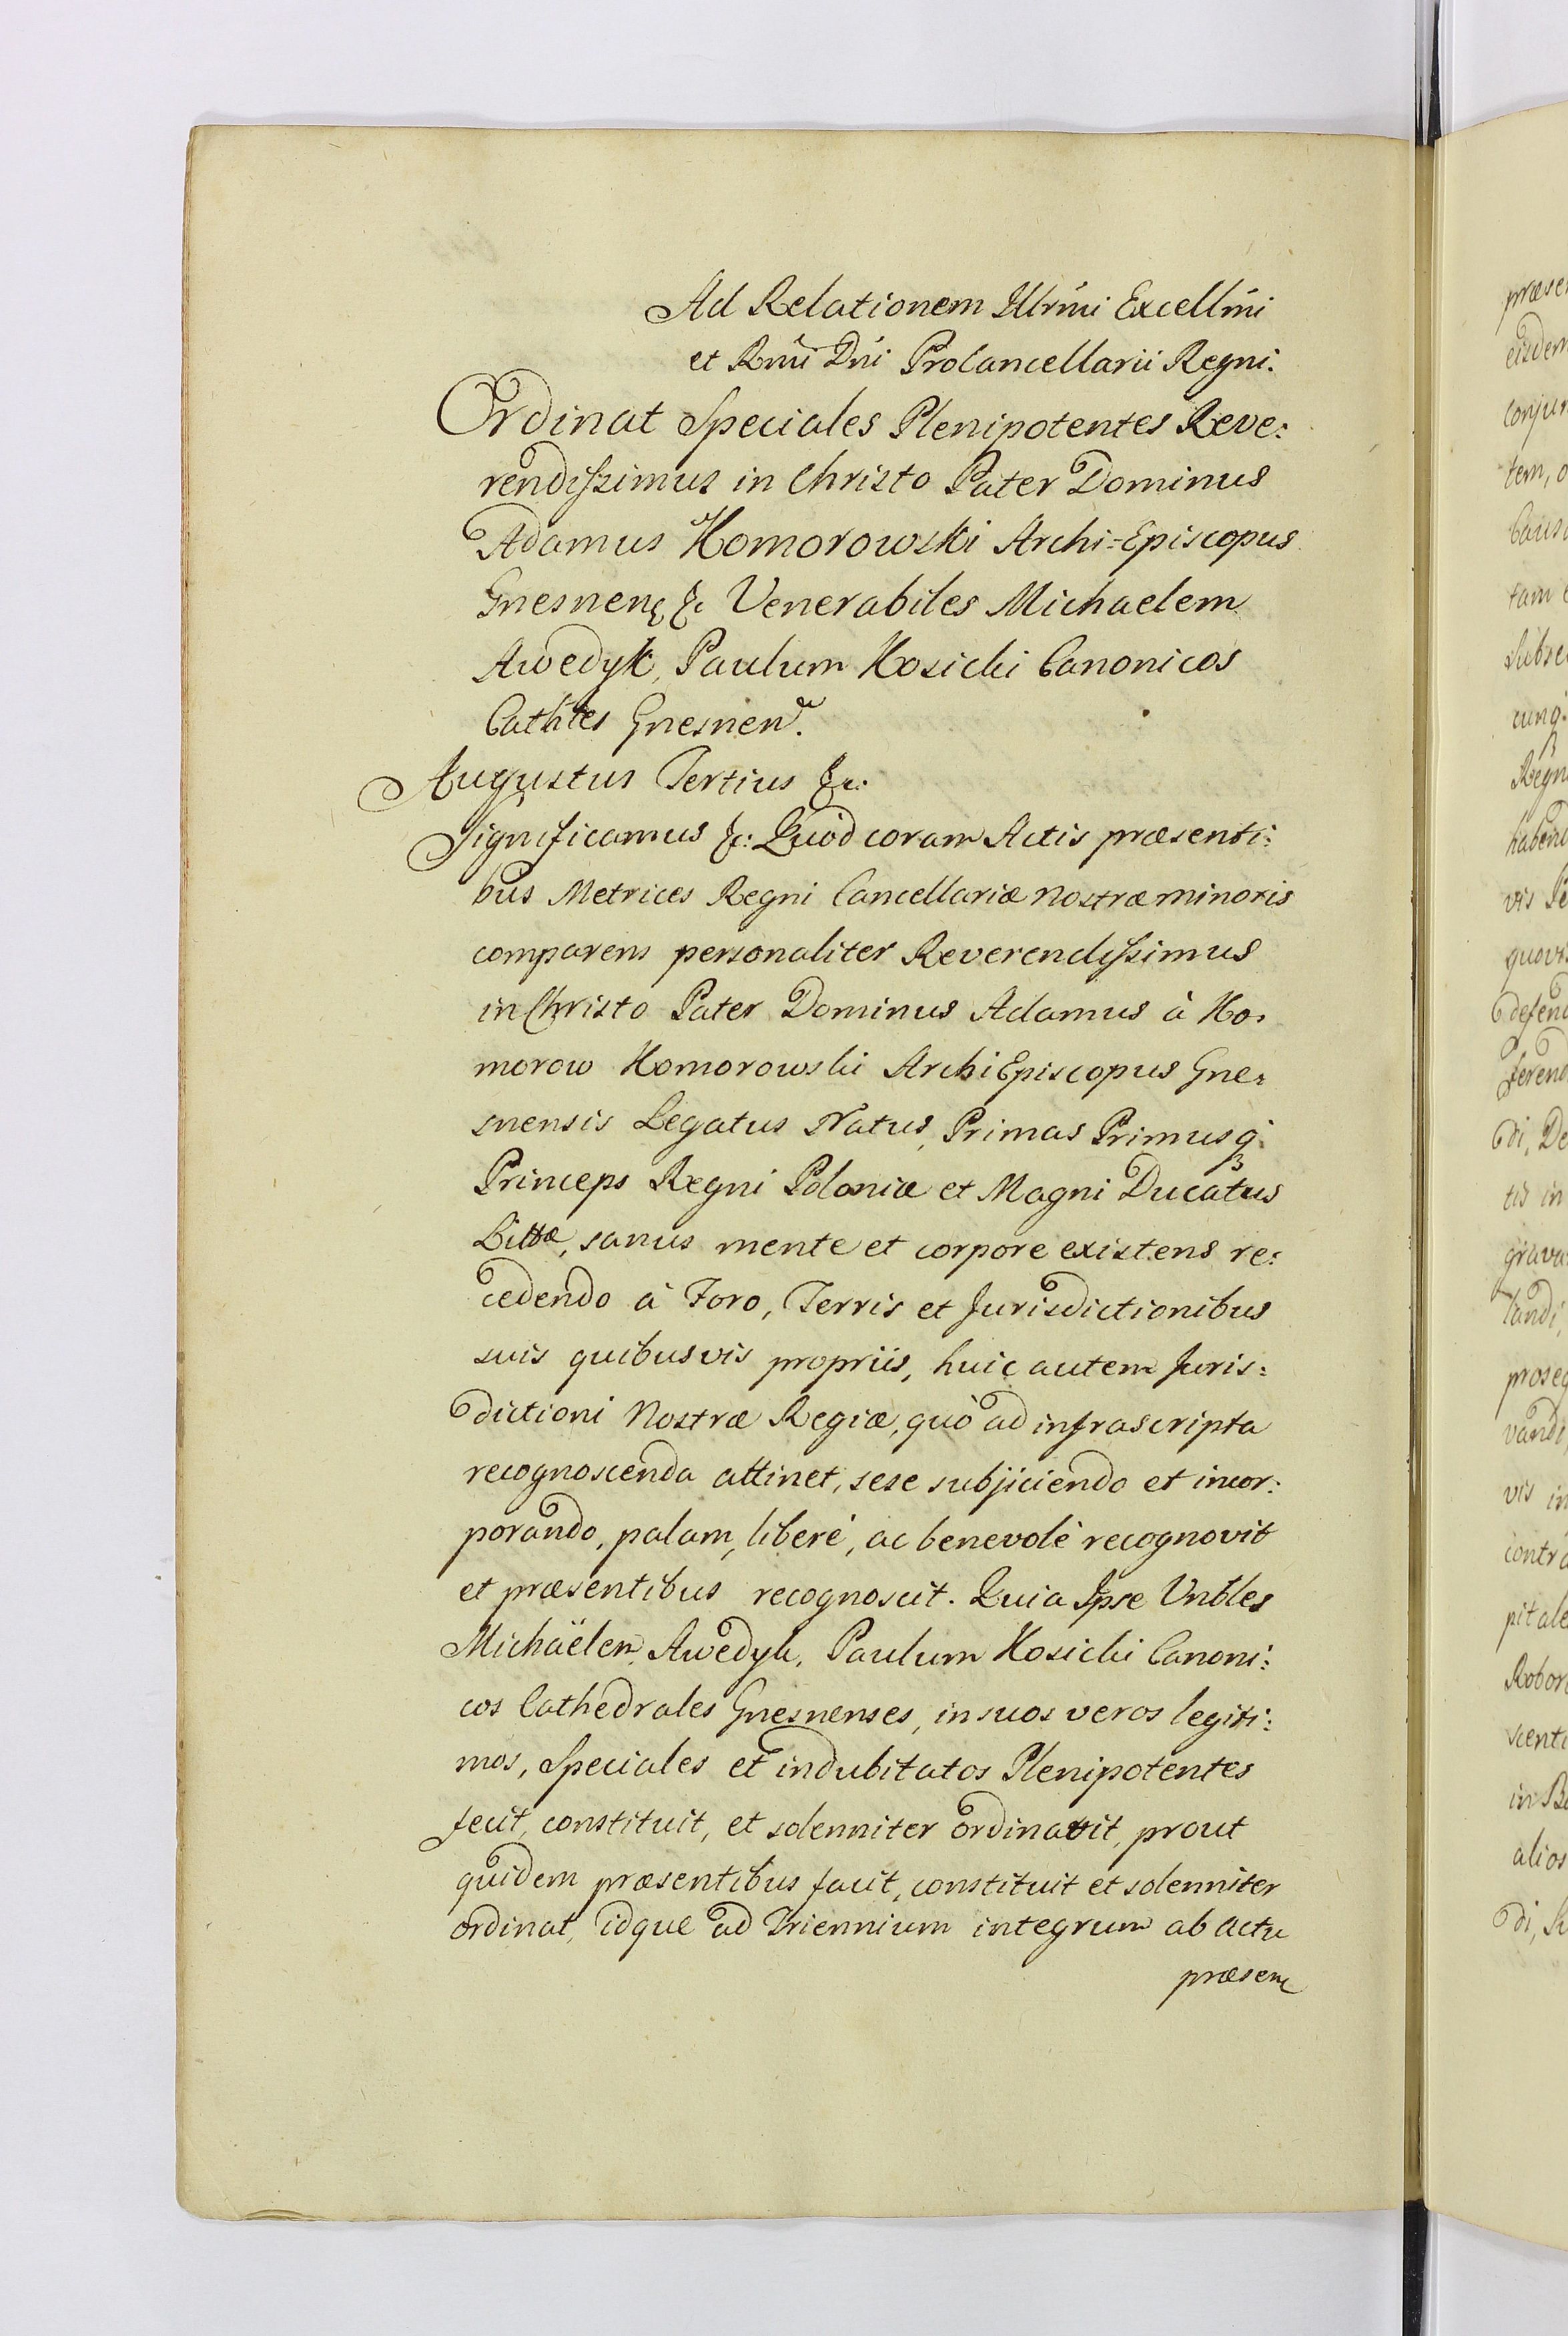 Ad Relationem Illrmi Excellmi
et Rmi Dni ProCancellarii Regni.
Ordinat Speciales Plenipotentes Reve:
rendissimus in Christo Pater Dominus
Adamus Komorowski Archi=Episcopus
Gnesnen &c Venerabiles Michaelem
Awedyk, Paulum Kosicki Canonicos
Cathtes Gnesnen.
Augustus Tertius &c:
Significamus &c: Quod coram Actis præsenti:
bus Metrices Regni Cancellariæ Nostræ minoris
comparens personaliter Reverendissimus
in Christo Pater Dominus Adamus à Ko:
morow Komorowski ArchiEpiscopus Gne:
snensis Legatus Natus, Primas Primusq;
Princeps Regni Poloniæ et Magni Ducatus
Littæ, sanus mente et corpore existens re:
cedendo à Foro, Terris et Jurisdictionibus
suis quibusvis propriis, huic autem Juris:
dictioni Nostræ Regiæ, quò ad infrascripta
recognoscenda attinet, sese subjiciendo et incor:
porando, palam, liberè, ac benevolè recognovit
et præsentibus recognoscit. Quia Ipse Vnbles
Michäelem Awedyk, Paulum Kosicki Canoni:
cos Cathedrales Gnesnenses, in suos veros legiti:
mos, Speciales et indubitatos Plenipotentes
fecit, constituit, et solenniter ordinavit, prout
quidem præsentibus facit, constituit et solenniter
ordinat, idque ad Triennium integrum ab actu
præsen